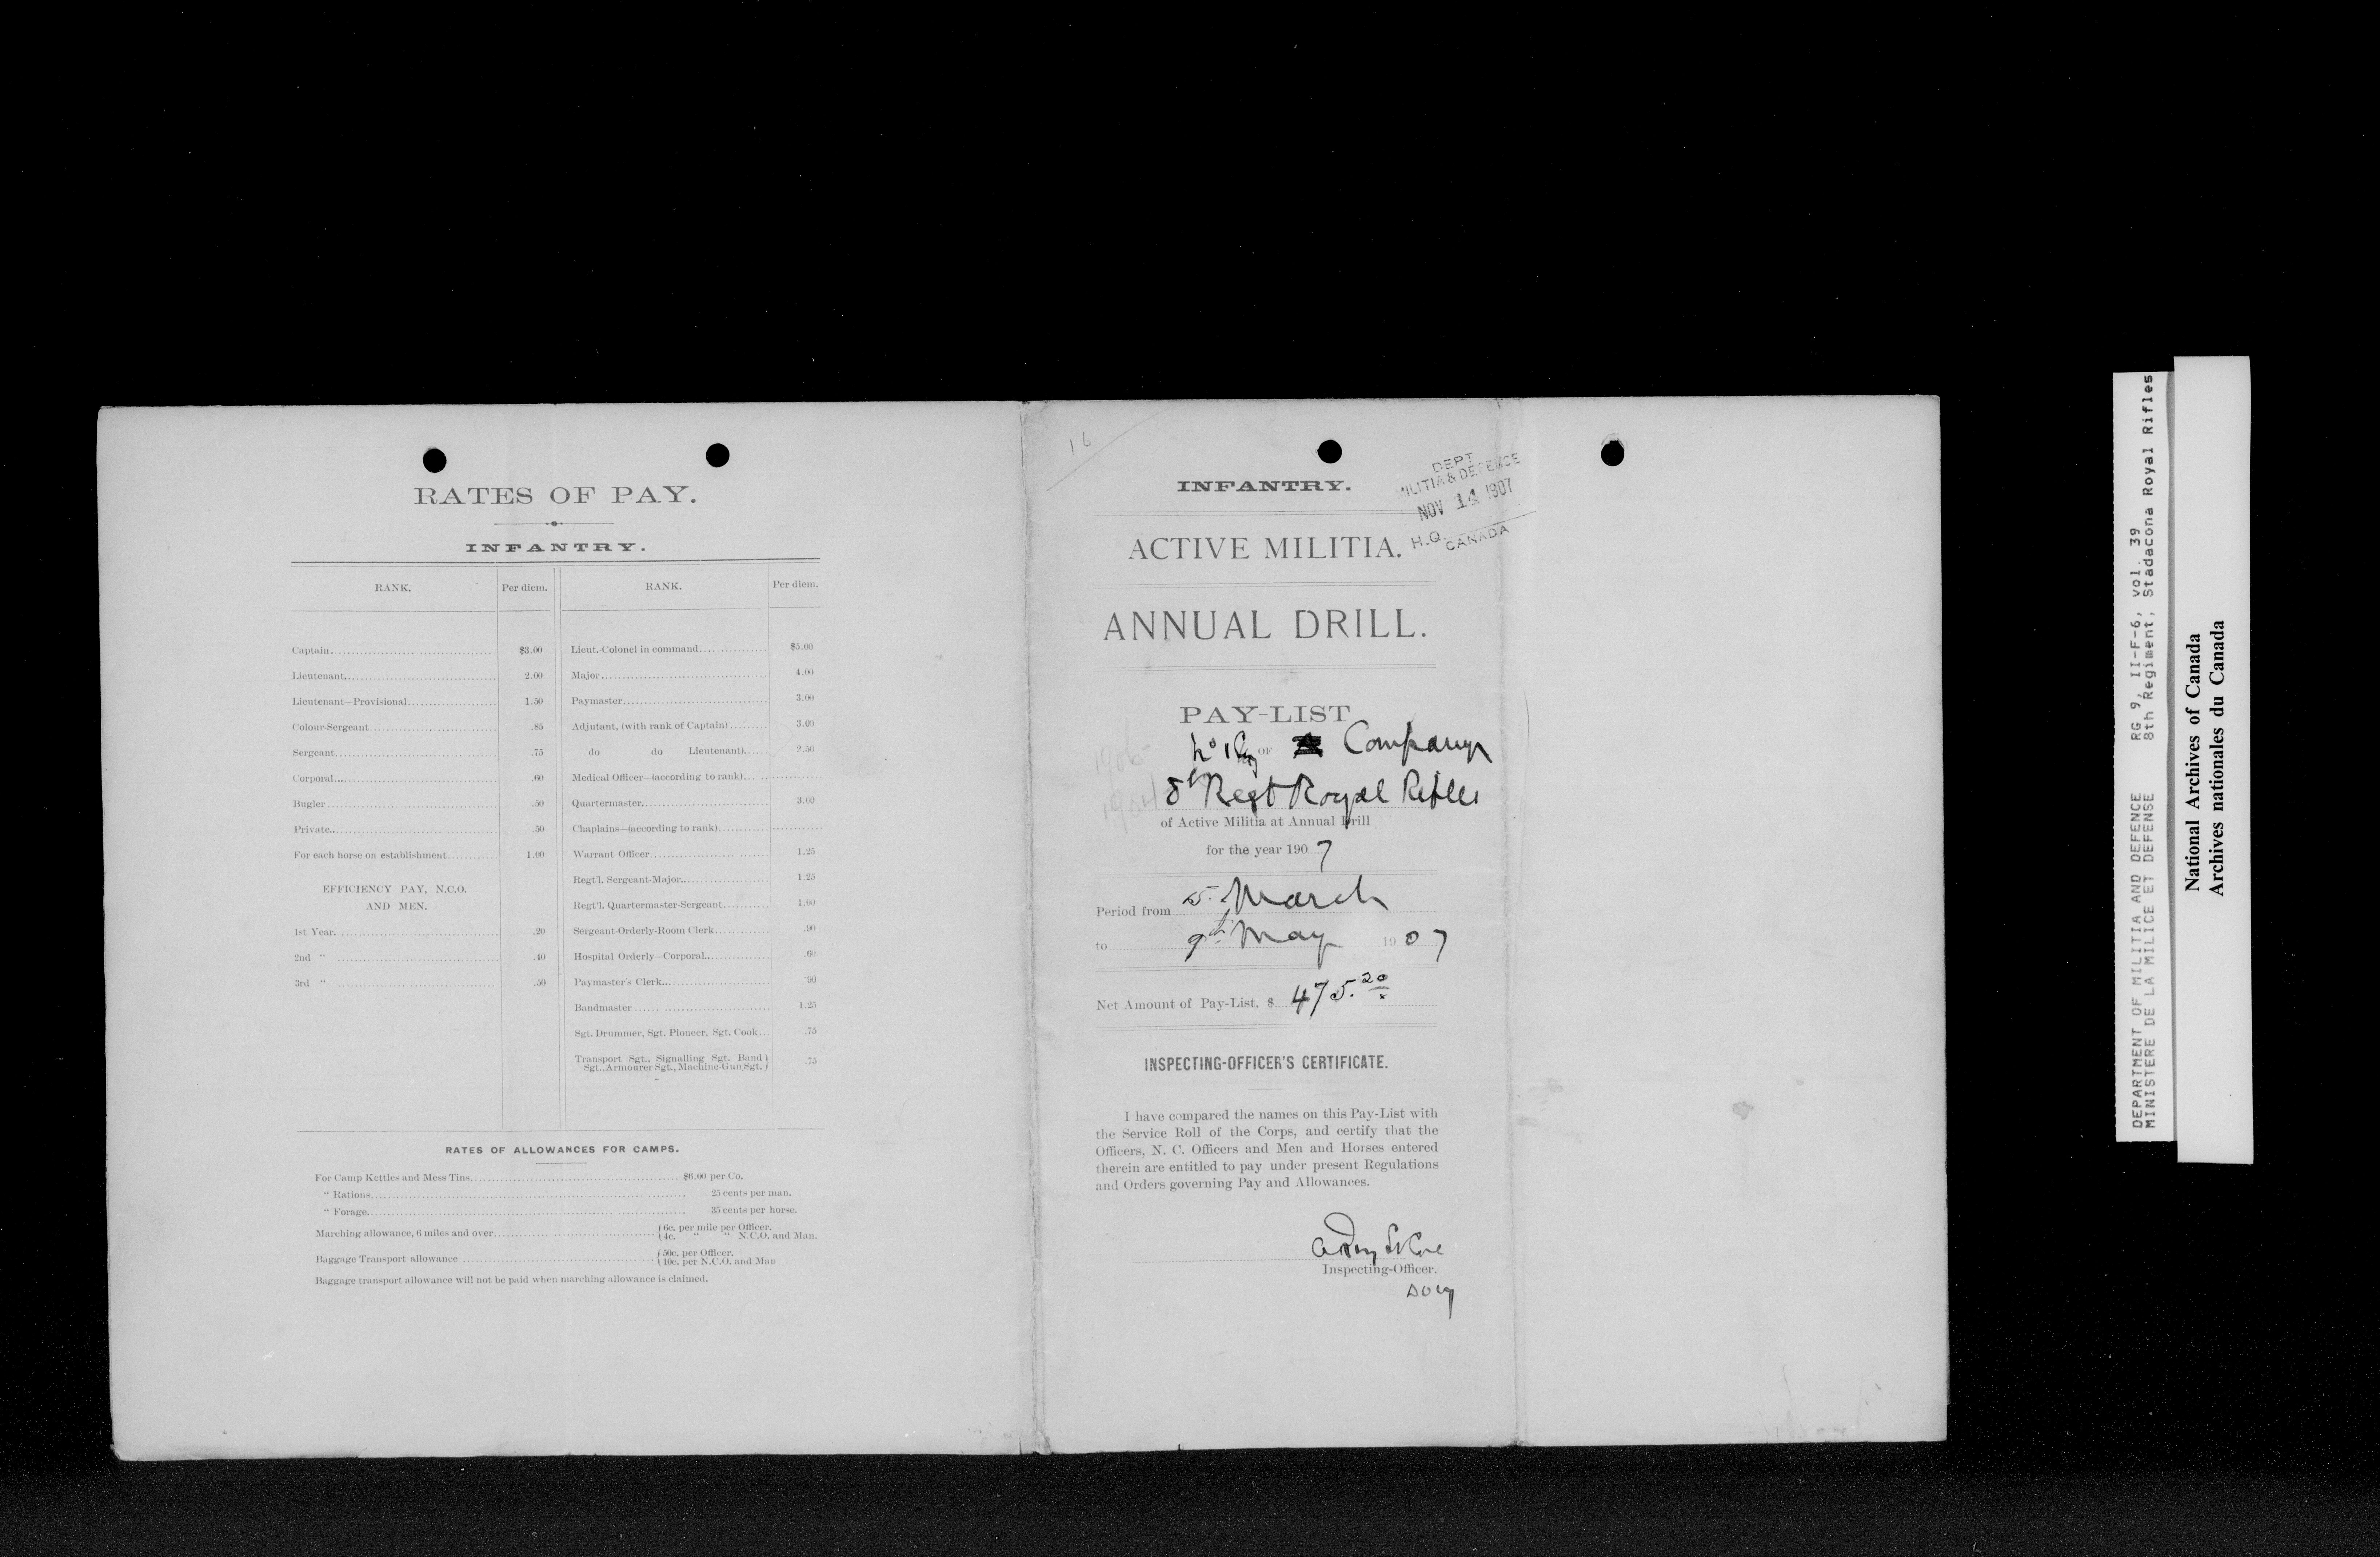 RATES OF PAY.
INFANTRY.
RANK. Per diem. RANK. Per diem.
Captain $3.00 Lieut.-Colonel in command $5.00
Lieutenant 2.00 Major 4.00
Lieutenant—Provisional 1.50 Paymaster 3.00
Colour-Sergeant .85 Adjutant, (with rank of Captain) 3.00
Sergeant .75 do do Lieutenant) 2.50
Corporal .60 Medical Officer—(according to rank)
Bugler .50 Quartermaster 3.00
Private .50 Chaplains—(according to rank)
For each horse on establishment 1.00 Warrant Officer 1.25
EFFICIENCY PAY, N.C.O. Regt'l. Sergeant-Major 1.25
AND MEN. Regt'l. Quartermaster-Sergeant 1.00
1st Year. .20 Sergeant-Orderly-Room Clerk .90
2nd " .40 Hospital Orderly—Corporal .60
3rd " .50 Paymaster's Clerk .90
Bandmaster 1.25
Sgt. Drummer, Sgt. Pioneer, Sgt. Cook .75
Transport Sgt., Signalling Sgt. Band
Sgt., Armourer Sgt., Machine-Gun Sgt. .75
RATES OF ALLOWANCES FOR CAMPS.
For Camp Kettles and Mess Tins $6.00 per Co.
" Rations 25 cents per man.
" Forage 35 cents per horse.
Marching allowance, 6 miles and over 6c. per mile per Officer.
4c. " " N.C.O. and Man.
Baggage Transport allowance 50c. per Officer.
10c. per N.C.O. and Man
Baggage transport allowance will not be paid when marching allowance is claimed.
16
INFANTRY.
DEPT
MILITIA & DEFENCE
NOV 14 1907
H.Q. CANADA
ACTIVE MILITIA.
ANNUAL DRILL.
PAY-LIST
No 1 Coy OF Company
8th Regt Royal Rifles
of Active Militia at Annual Drill
for the year 1907
Period from 5. March
to 9th May 1907
Net Amount of Pay-List, $ 475.20
INSPECTING-OFFICER'S CERTIFICATE.
I have compared the names on this Pay-List with
the Service Roll of the Corps, and certify that the
Officers, N. C. Officers and Men and Horses entered
therein are entitled to pay under present Regulations
and Orders governing Pay and Allowances.
Inspecting-Officer.
DOCy
DEPARTMENT OF MILITIA AND DEFENCE RG 9, II-F-6, vol. 39
MINISTERE DE LA MILICE ET DEFENSE 8th Regiment, Stadacona Royal Rifles
National Archives of Canada
Archives nationales du Canada